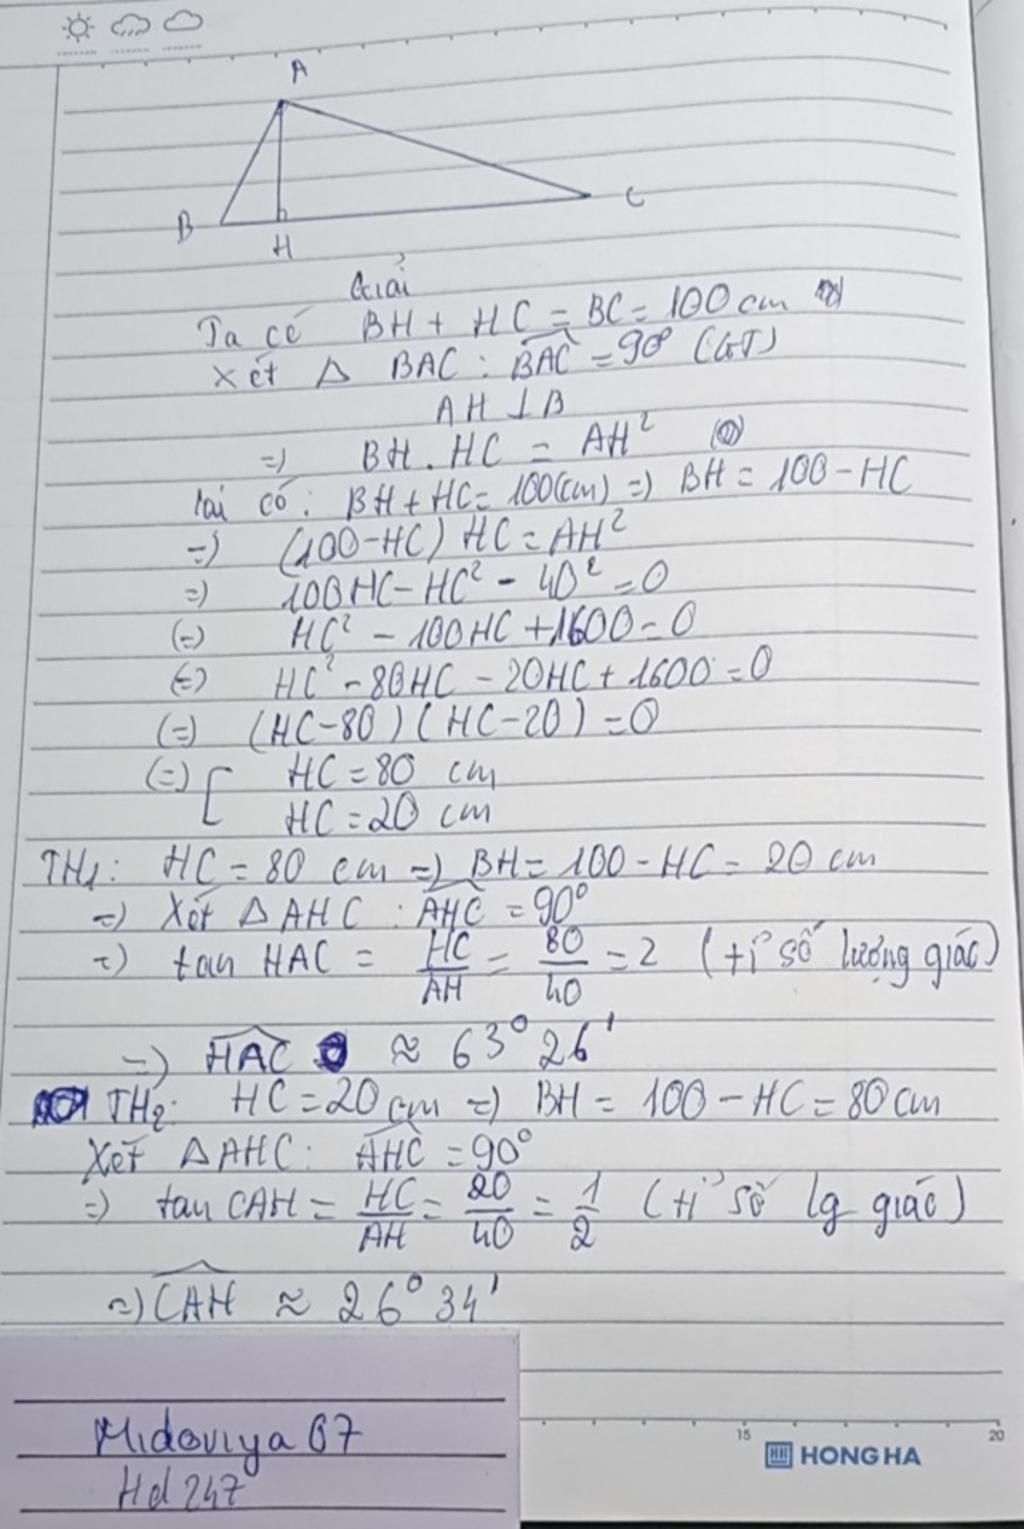 A
B
H
C
Giải
Ta có BH + HC = BC = 100 cm
Xét Δ BAC : BAC = 90° (GT)
AH ⊥ B
=) BH . HC = AH²
lại có : BH + HC = 100(cm) =) BH = 100 - HC
=) (100-HC) HC = AH²
=) 100HC - HC² - 40² = 0
(=) HC² - 100HC + 1600 = 0
(=) HC² - 80HC - 20HC + 1600 = 0
(=) (HC-80) (HC-20) = 0
(=) [ HC = 80 cm
HC = 20 cm
TH1: HC = 80 cm =) BH = 100 - HC = 20 cm
=) Xét Δ AHC : AHC = 90°
=) tan HAC = HC/AH = 80/40 = 2 (tỉ số lượng giác)
=) HAC ≈ 63°26'
TH2: HC = 20 cm =) BH = 100 - HC = 80 cm
Xét Δ AHC: AHC = 90°
=) tan CAH = HC/AH = 20/40 = 1/2 (tỉ số lg giác)
=) CAH ≈ 26°34'
15
20
HONG HA
Midoviya 07
Hd 247